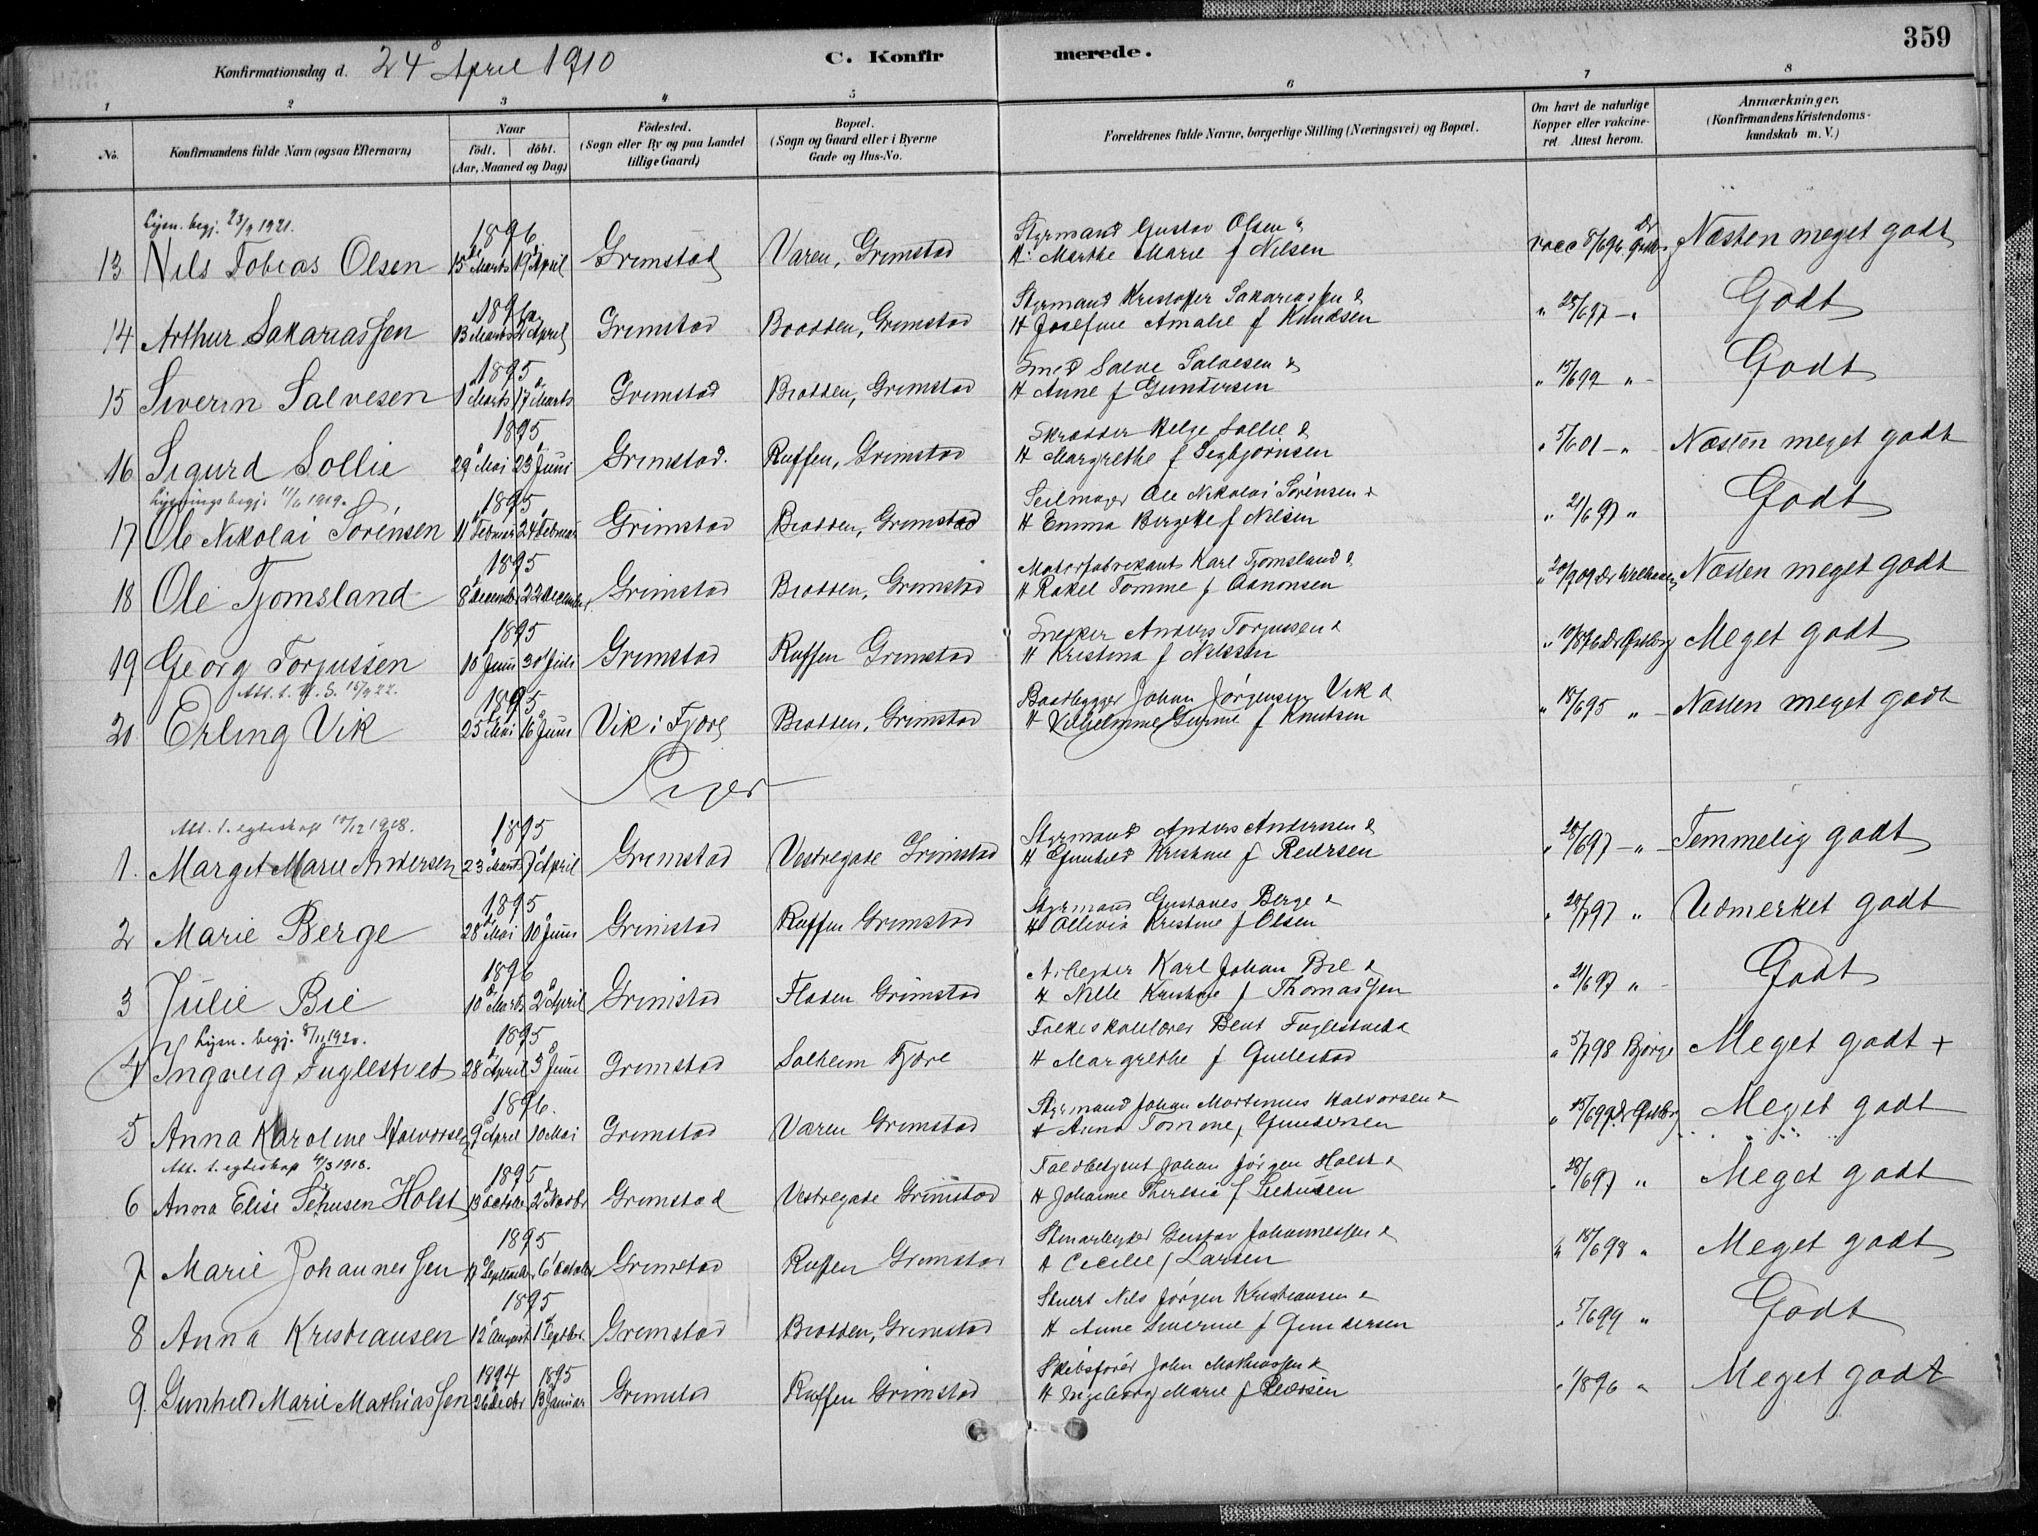 359
Konfirmationsdag d. 24de April 1910 C. Konfirmerede.
1 2 3 4 5 6 7 8
No. Konfirmandens fulde Navn (ogsaa Efternavn) Naar födt. döbt. (Aar, Maaned og Dag) Födested. (Sogn eller By og paa Landet tillige Gaard) Bopæl. (Sogn og Gaard eller i Byerne Gade og Hus-No. Forældrenes fulde Navne, borgerlige Stilling (Næringsvei) og Bopæl. Om havt de naturlige Kopper eller vakcineret Attest herom. Anmærkninger. (Konfirmandens Kristendomskundskab m. V.)
Lysn. begj. 23/9 1921.
1896 Styrmand Gustav Olsen &
13 Nils Tobias Olsen 15 Marts 19 April Grimstad Varen, Grimstad H. Marthe Marie f Nilsen vacc 8/6 96 Næsten meget godt
1896 Styrmand Kristoffer Sakariassen &
14 Arthur Sakariassen 13 Marts April Grimstad Brodden, Grimstad H Josefine Amalie f Knudsen " 25/6 97 - " Godt
1895 Smed Salve Salvesen &
15 Siverin Salvesen 1 Marts 17 Marts Grimstad Brodden, Grimstad H Anne f Gundersen " 15/6 92 " Godt
1895 Skrædder Helge Sollie &
16 Sigurd Sollie 29 Mai 23 Juni Grimstad. Ruffen, Grimstad H Margrethe f Segbjørnsen " 5/6 01 - " Næsten meget godt
Lysningsbegj. 11/6 1919.
1895 Seilmager Ole Nikolai Sörensen &
17 Ole Nikolai Sörensen 11 Februar 24 Februar Grimstad Brodden, Grimstad H Emma Birgitte f Nilsen " 21/6 97 " Godt
1895 Motorfabrikant Karl Tjomsland &
18 Ole Tjomsland 8 December 22 December Grimstad Brodden, Grimstad H Rakel Tomine f Aanonsen " 20/9 09 Næsten meget godt
1895 Snekker Anders Torjussen &
19 Georg Torjussen 10 Juni 30 Juli Grimstad Ruffen Grimstad H Kristina f Nilssen " 10/8 96 Dr Meget godt
1895 Baadbygger Johan Jørgensen Vik &
20 Erling Vik 25 Mai 16 Juni Vik i Fjære Brodden, Grimstad H Vilhelmine Gurine f Knudsen " 18/6 95 " Næsten meget godt
Piger
Att. t. egteskap 10/12 1918.
1895 Styrmand Anders Andersen &
1. Margit Marie Andersen 23 Marts 7 April Grimstad Vestregade Grimstad H Gunhild Kristine f Pedersen " 28/6 97 - " Temmelig godt
1895 Styrmand Gustanes Berge &
2 Marie Berge 28 Mai 10 Juni Grimstad Ruffen Grimstad H Ollivia Kristine f Olsen " 20/7 97 " Udmerket godt
1896 Arbeider Karl Johan Bie &
3 Julie Bie 10 Marts 2 April Grimstad Fladen Grimstad H Nille Kristine f Thomassen " 21/6 97 " Godt
Lysn. begj. 8/11 1920.
1895 Folkeskolelærer Bent Fuglestvedt &
4 Ingveig Fuglestvet 28 April 3 Juni Grimstad Solheim Fjære H Margrethe f Gullestad " 5/7 98 Bjørge Meget godt +
1896. Styrmand Johan Martinius Halvorsen &
5 Anna Karoline Halvorsen 9 April 10 Mai Grimstad Varen Grimstad H Anna Tomine f Gundersen " 15/6 99 Dr Meget godt
Att. t. egteskap 4/3 1918.
1895 Toldbetjent Johan Jörgen Holst &
6 Anna Elise Sehusen Holst 13 October 2 Novbr Grimstad Vestregade Grimstad H Johanne Theresia f Sehusen " 28/6 97 " Meget godt
1895 Stenarbeyder Gustav Johannessen &
7 Marie Johannessen 17 Septembr 6 October Grimstad Ruffen Grimstad H Cecilie f Larsen " 18/6 98 " Meget godt
1895 Stuert Nils Jørgen Kristiansen &
8 Anna Kristiansen 12 August 1 Septbr. Grimstad Brodden, Grimstad H Anne Siverine f Gundersen " 5/6 99 " Godt
1894 1895 Skibsförer John Mathiassen &
9. Gunhild Marie Mathiassen 26 Decbr 13 Januar Grimstad Ruffen Grimstad H Ingeborg Marie f Pedersen " 1/8 96 " Meget godt